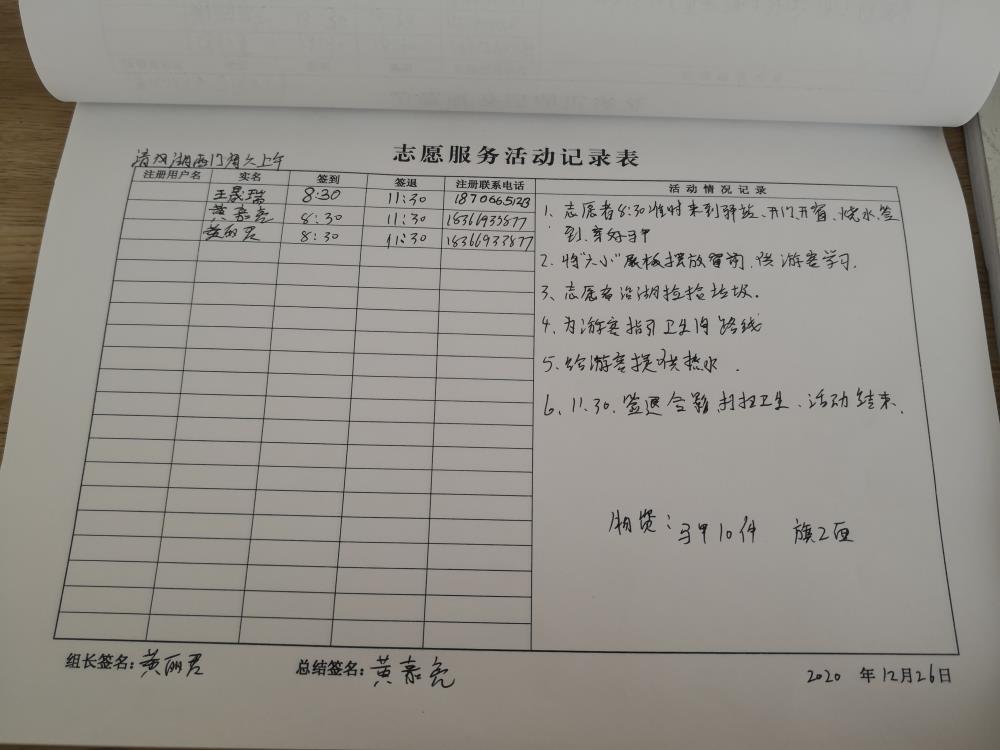 志愿服务活动记录表
清风湖西门周六上午
注册用户名 实名 签到 签退 注册联系电话 活动情况记录
王晟瑞 8:30 11:30
黄嘉亮 8:30 11:30 18366933877
黄丽君 8:30 11:30 18366933877
1、志愿者8:30准时来到驿站、开门、开窗、烧水、签
到、穿好马甲
2、将“大小”展板摆放窗前、供游客学习.
3、志愿者沿湖捡拾垃圾.
4、为游客指引卫生间路线
5、给游客提供热水.
6、11:30.签退合影 打扫卫生、活动结束.
物资:马甲10件 旗2面
组长签名:黄丽君 总结签名:黄嘉亮 2020 年12月26日